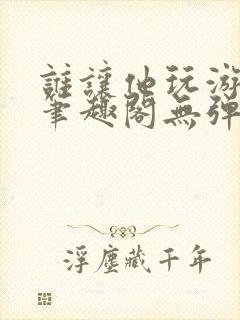 誰讓他玩游
筆趣閣無彈
浮塵藏千年